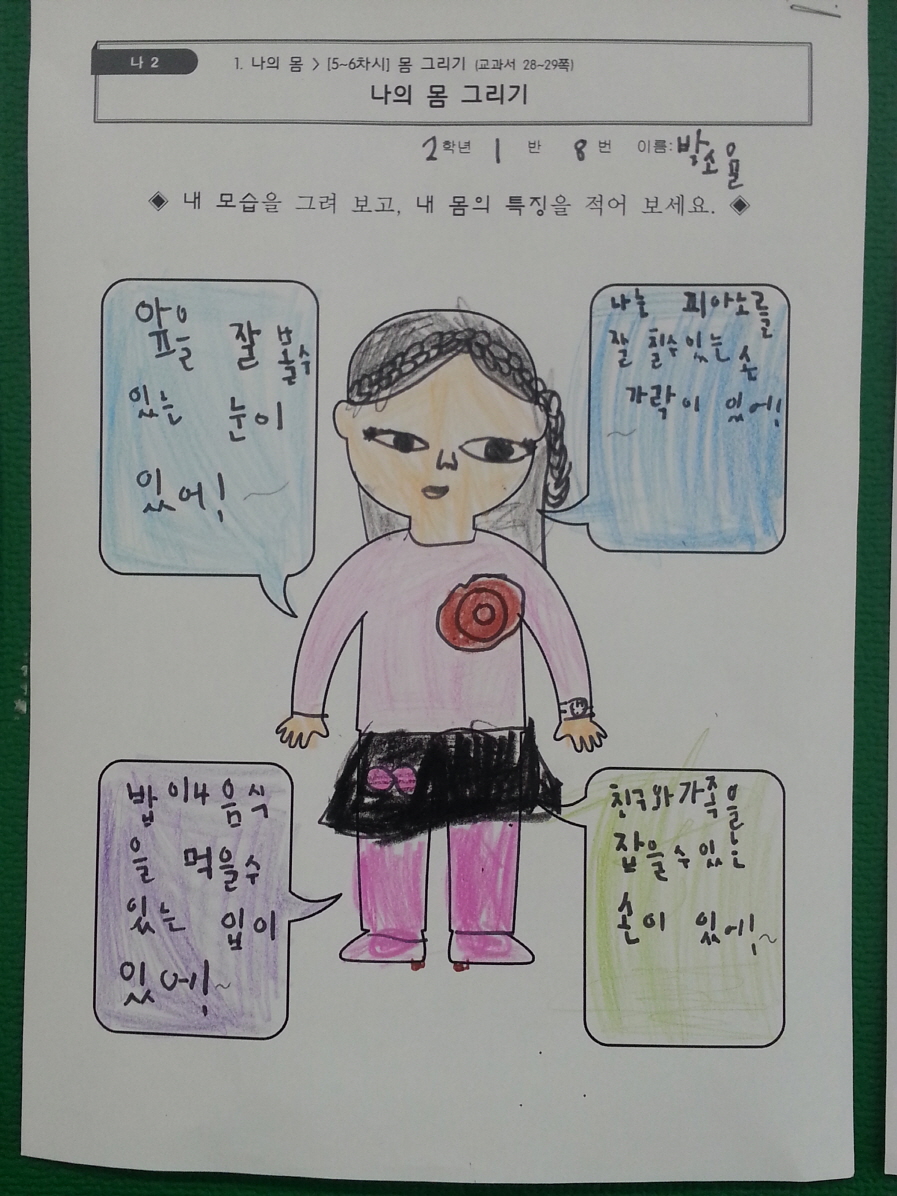 나 2
1. 나의 몸 > [5~6차시] 몸 그리기 (교과서 28~29쪽)
나의 몸 그리기
2학년 1 반 8 번 이름: 박소율
◈ 내 모습을 그려 보고, 내 몸의 특징을 적어 보세요. ◈
앞을 잘 볼수
있는 눈이
있어!
나는 피아노를
잘 칠수있는 손
가락이 있어!
~
밥이나 음식
을 먹을수
있는 입이
있어!~
친구와가족을
잡을수있는
손이 있어!~